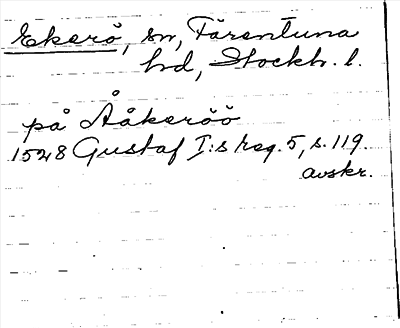 Ekerö, sn, Färentuna
hd, Stockh. l.
på Ååkeröö
1528 Gustaf I:s reg. 5, s. 119.
avskr.